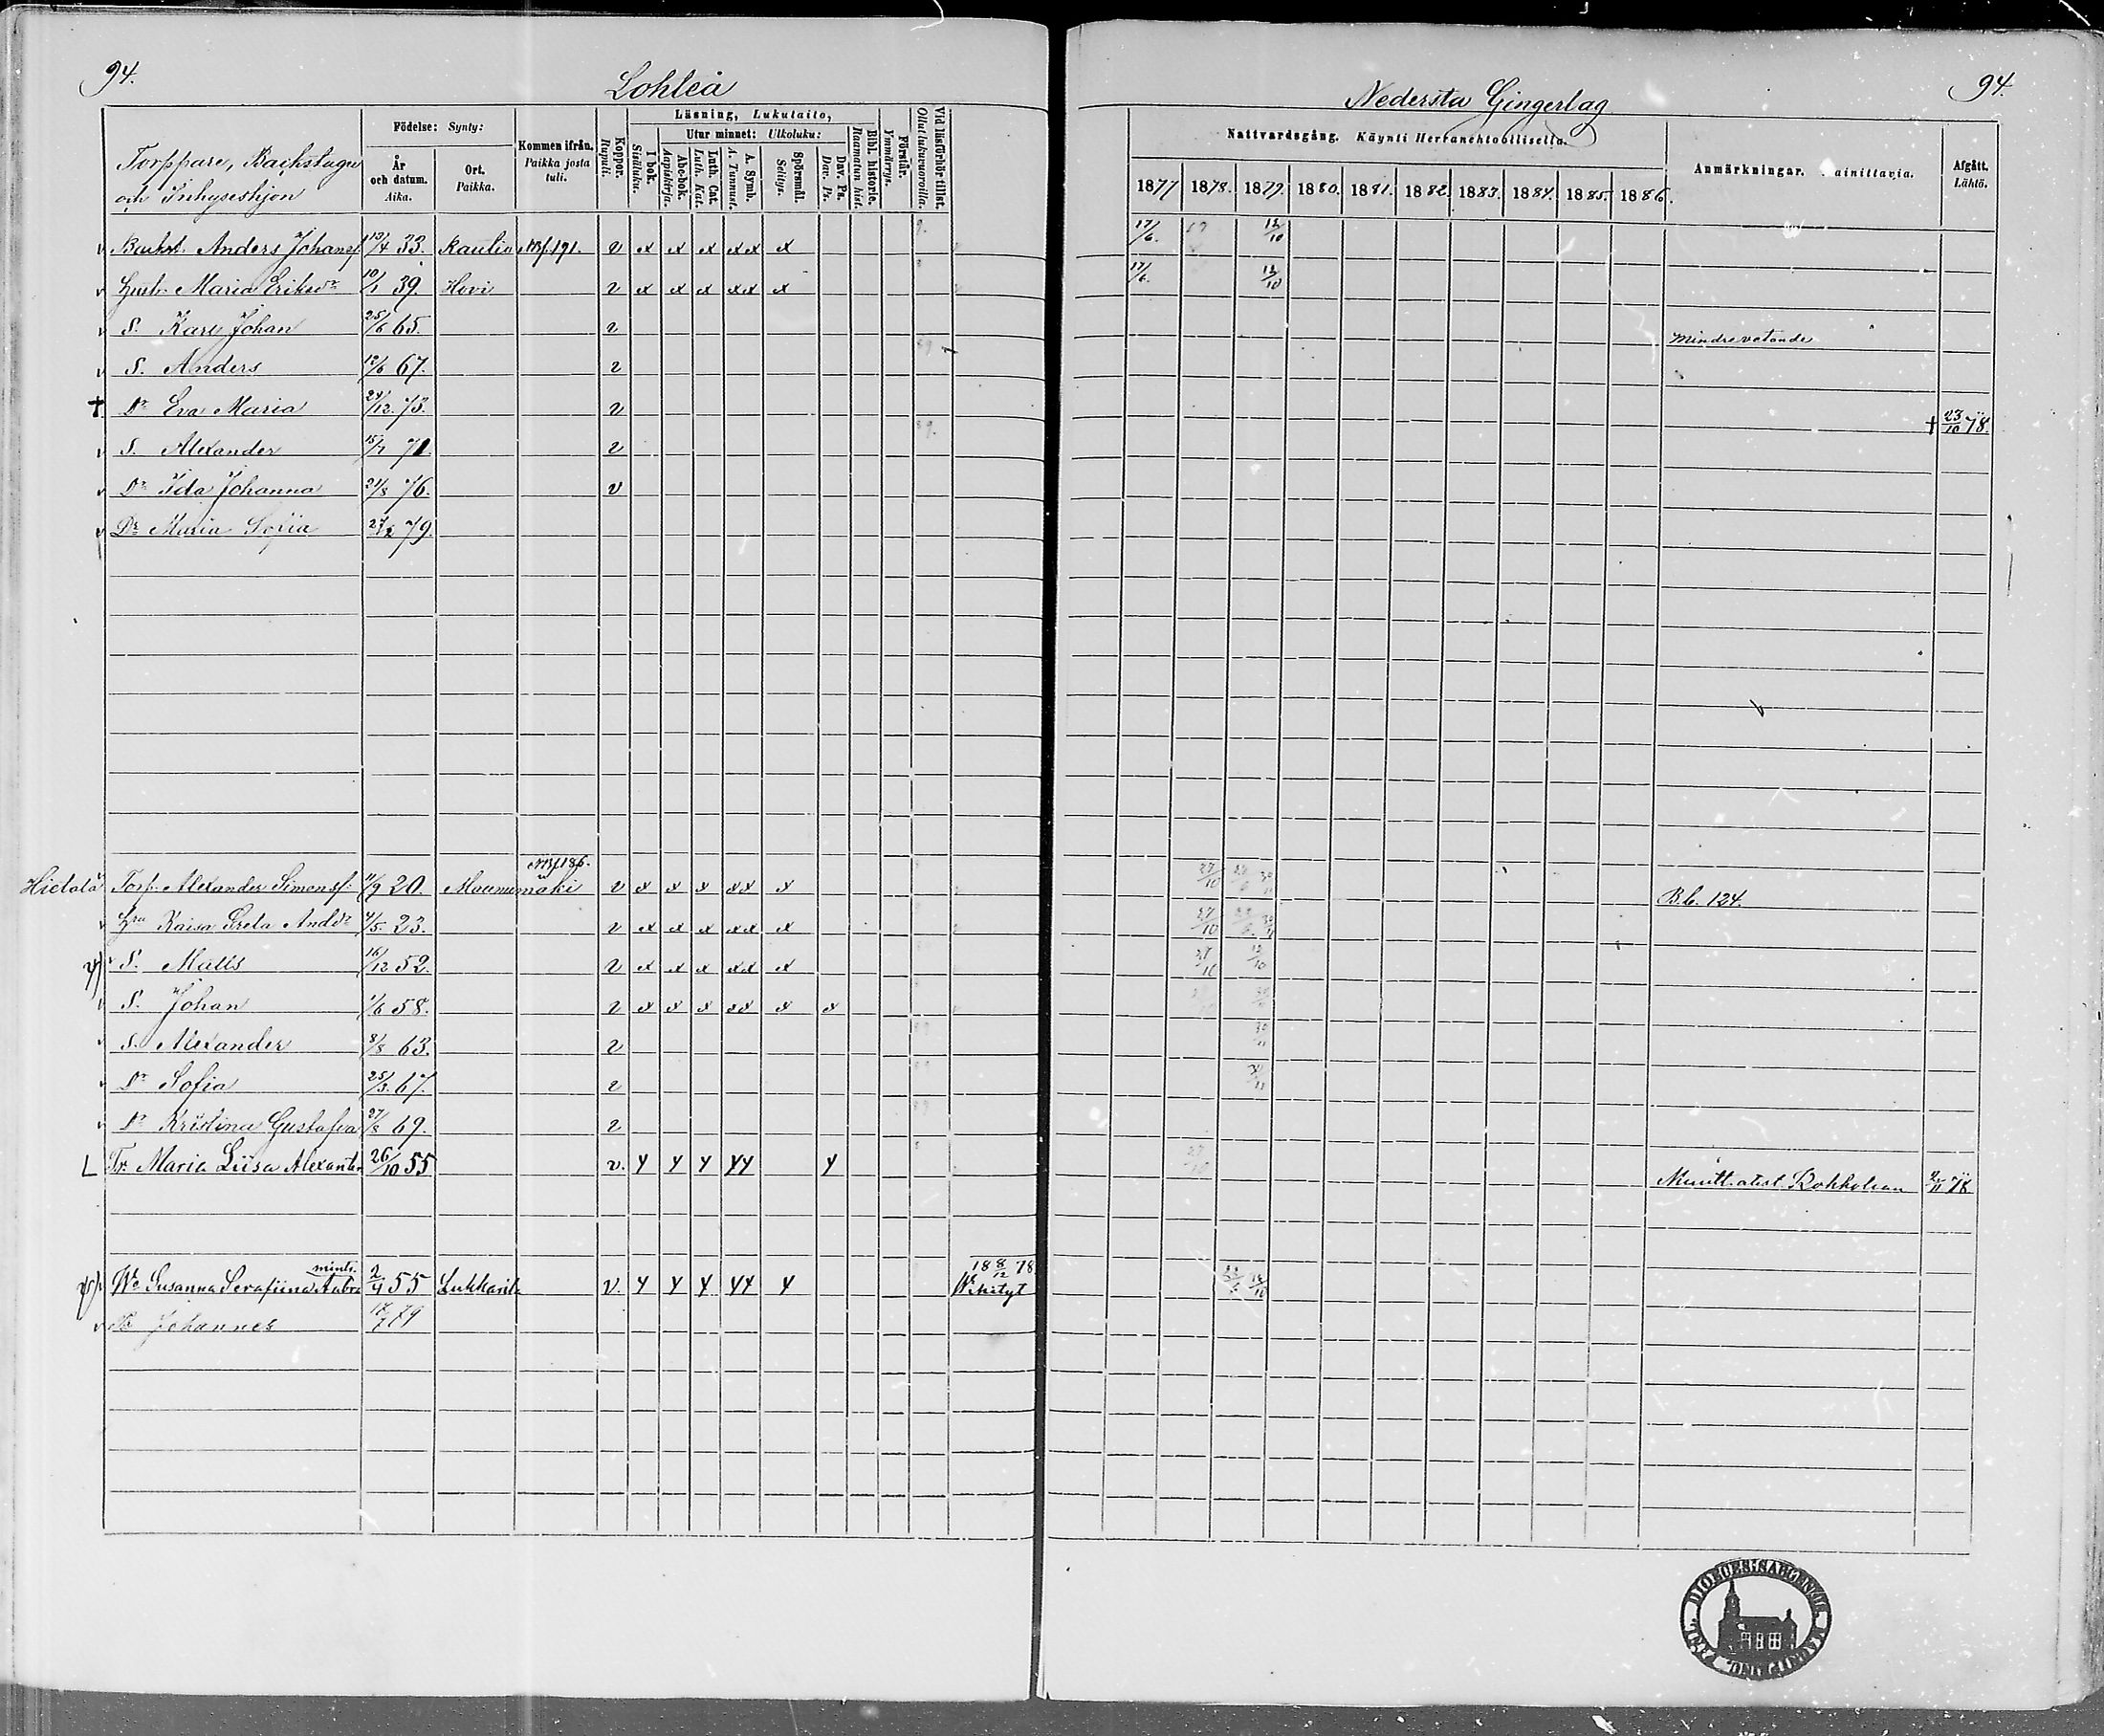 94.
Lohteå
Nedersta Gingerlag
94.
Torppare, Backstugu
och Inhyseshjon
Födelse: Synty:
År och datum. Aika.
Ort. Paikka.
Kommen ifrån. Paikka josta tuli.
Koppor. Rupuli.
Läsning, Lukutaito,
I bok. Sisäluku.
Utur minnet: Ulkoluku:
Abc-bok. Aapiskirja.
Luth. Cat. Luth. Kat.
A. Symb. A. Tunnust.
Spörsmål. Selitys.
Dav. Ps. Dav. Ps.
Bibl. historie. Raamatun hist.
Förstår. Ymmärrys.
Vid läsförhör tillst. Ollut lukuvuoroilla.
Nattvardsgång. Käynti Herranehtoollisella.
1877 1878. 1879. 1880. 1881. 1882. 1883. 1884. 1885. 1886.
Anmärkningar. ainittavia.
Afgått. Lähtö.
v Backst. Anders Johansf 13/4 33. Rautio NBf. 191. v x x x xx x 17/6. 12/10
v Hust. Maria Eriksdr 10/1 39. Hovi v x x x xx x 17/6. 12/10
v S. Karl Johan 25/6 65. v mindre vetande
v S. Anders 12/6 67. v
† Dr Eva Maria 24/12. 73. v † 23/10 78.
v S. Alexander 15/7 71. v
v Dr Ida Johanna 21/8 76. v
v Dr Maria Sofia 27/2 79.
NBf. 186.
Hietala Torp. Alexander Simonsf. 11/9 20. Maunumäki v x x x xx x 27/10 B.b. 124.
v Hru Kaisa Greta Anddr 4/5. 23. v x x x xx x 27/10
v S. Matts 16/12 52. v x x x xx x 27/10 12/10
v S. Johan 1/6 58. v x x x xx x x
v S. Alexander 8/8 63. v 30/11
v Dr Sofia 25/3. 67. v 30/11
v Dr Kristina Gustafva 27/8 69. v
L Tr. Maria Liisa Alexantr 26/10 55 v. y y y yy y Muutt. atest. Kokkolaan 78
mints.
Wo Susanna Serafiina Aabra 2/4 55 Lukkarila v. y y y yy y 18 8/12 78 Wihityt 12/10
v Johannes 17/7 79
DIOECESISAEGENDE